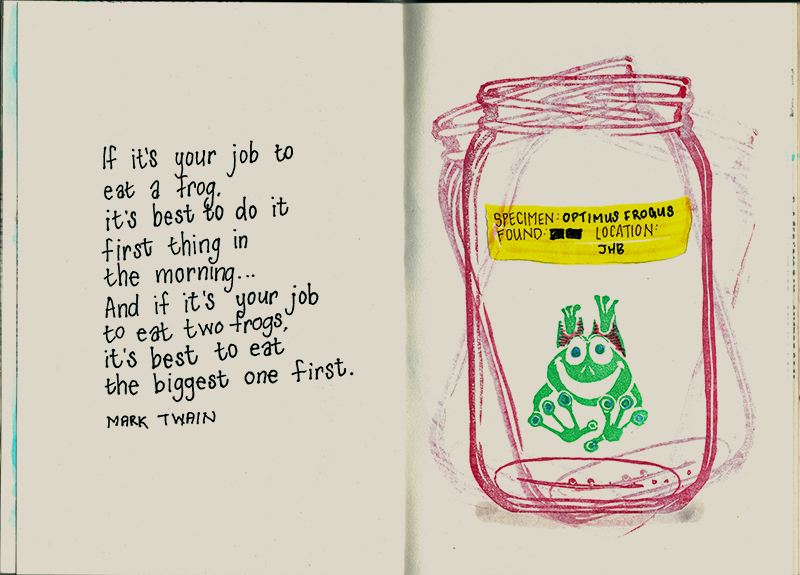 If it's your job to
eat a frog,
it's best to do it
first thing in
the morning...
And if it's your job
to eat two frogs,
it's best to eat
the biggest one first.
MARK TWAIN
SPECIMEN: OPTIMUS FROGUS
FOUND: LOCATION:
JHB